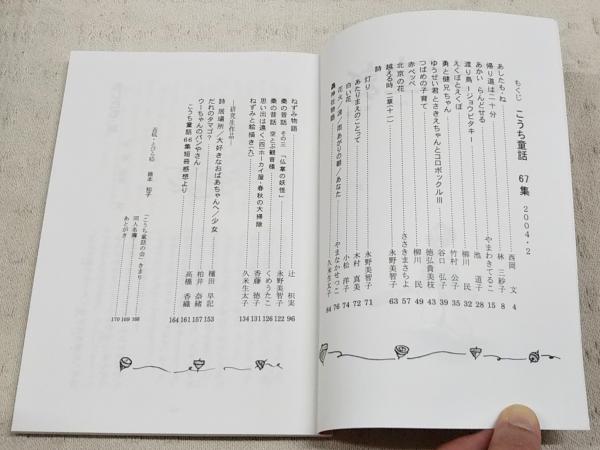 もくじ　こうち童話　67集　2004・2
あしたもーね　西岡　文　4
帰り道は二十分　林　三紗子　8
あかい　らんどせる　やまわきてるこ　15
渡り鳥 ージョウビタキー　池　道子　28
えくぼとえくぼ　柳川　民　32
勇と健兄ちゃん　竹村　公子　35
ゆうせい君とさきえちゃんとコロボックルⅢ　谷口　弘子　39
つばめの子育て　徳弘貴美枝　43
赤ベッベ　柳川　民　49
北京の花　ささきまさちよ　57
越える時（二章（十二））　永野美智子　63
詩
灯り　永野美智子　71
あたりまえのことって　木村　真美　72
白い花　小松　洋子　74
花火／滝／雨あがりの朝／あなた　やまなかせつこ　76
久米生太子　84
ねずみ物語　辻　枳実　96
秦の昔話　その三　「仏草の妖怪」　永野美智子　122
秦の昔話　空とぶ観音様　くめうたこ　126
思い出は遠く（四）ホーカイ屋・春秋の大掃除　香藤　徳子　131
ねずみと絵描き（九）　久米生太子　134
ー研究生作品ー
詩　居場所／大好きなおばあちゃんへ／少女　種田　早記　153
だれのタマゴ？　柏井　奈緒　157
ウーちゃんのパンやさん　高橋　香織　161
こうち童話66集短冊感想より　164
表紙・とびら絵　藤本　知子
「こうち童話の会」きまり　168
同人名簿　169
あとがき　170